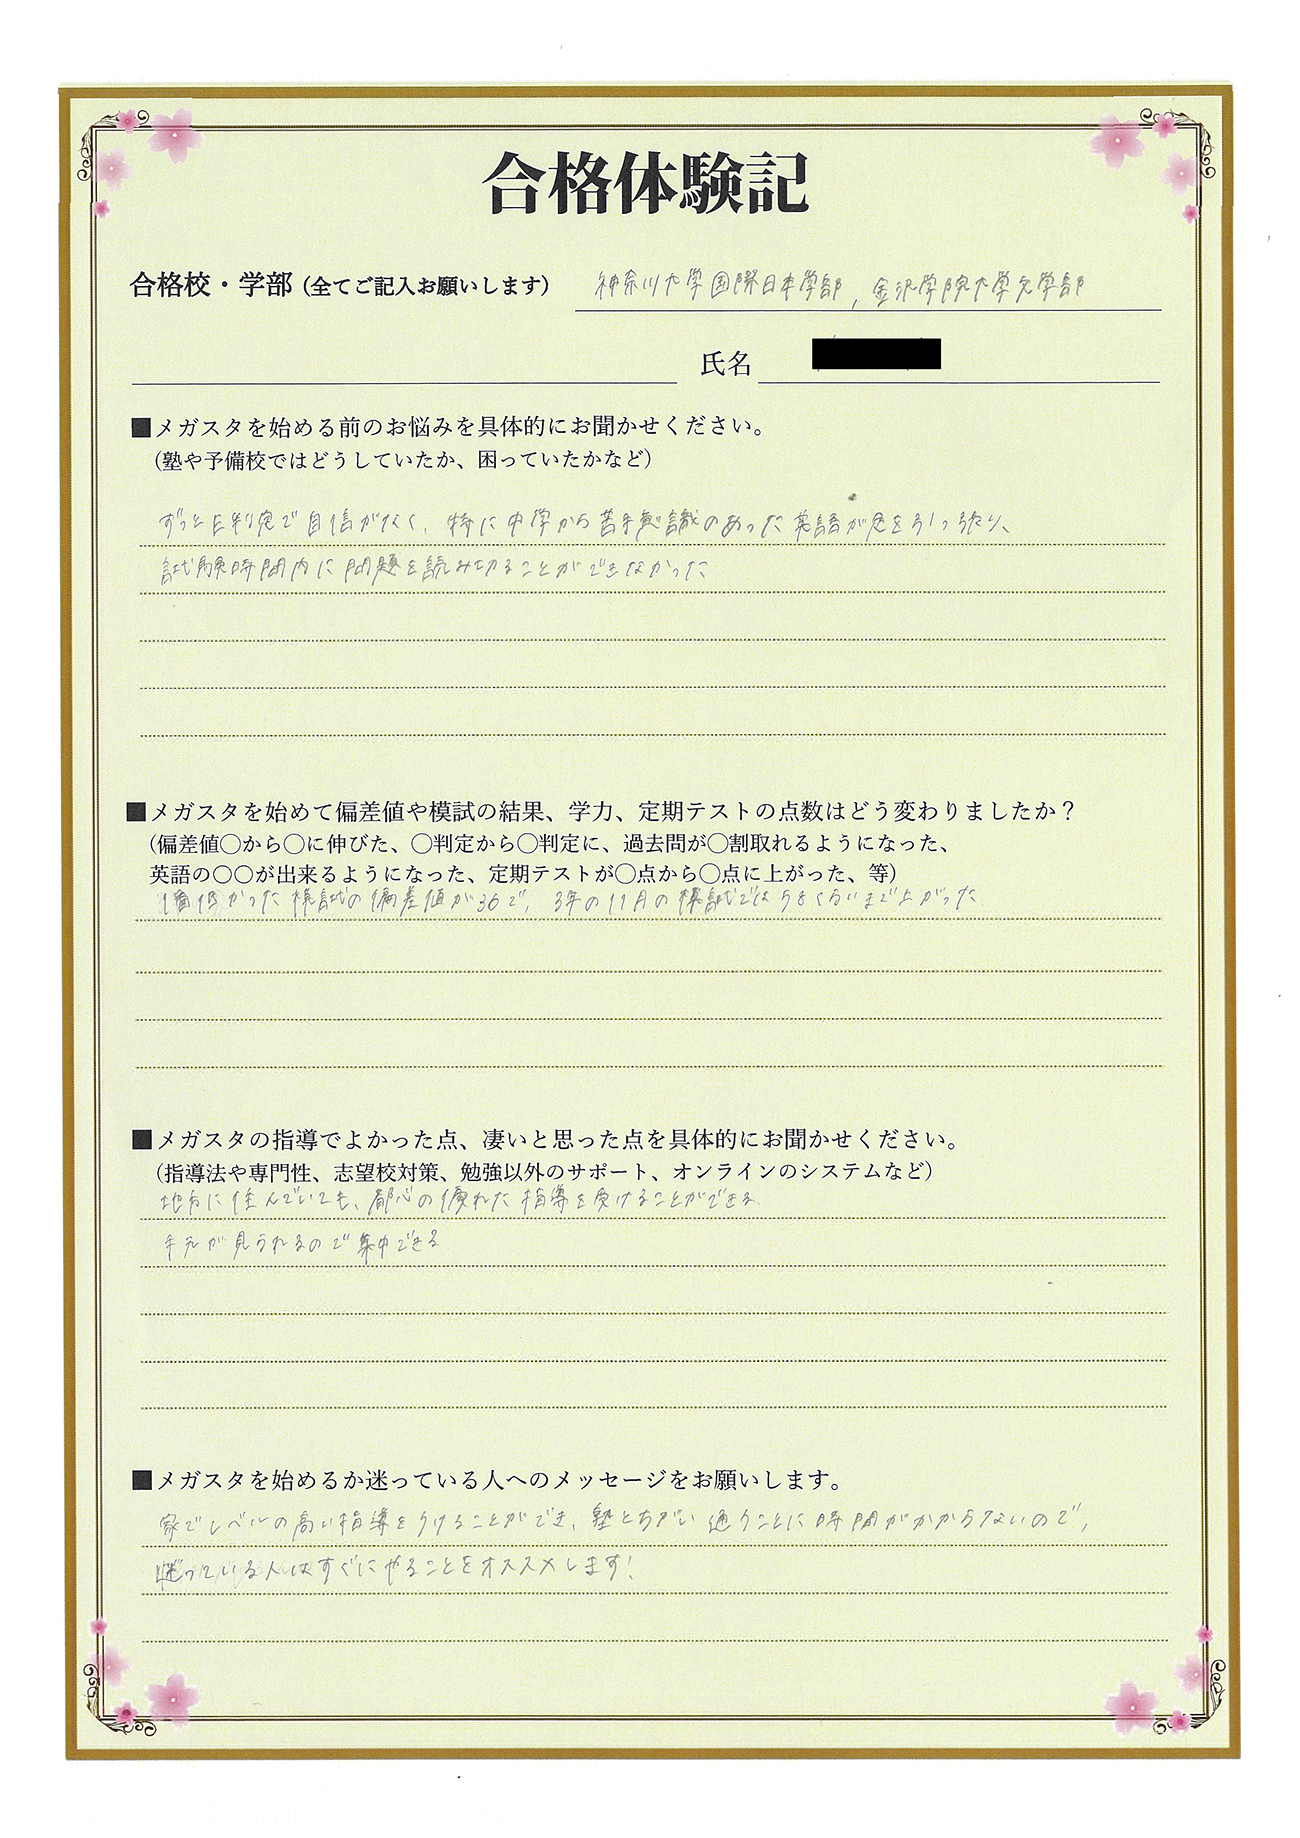 合格体験記
合格校・学部（全てご記入お願いします） 神奈川大学国際日本学部, 金沢学院大学文学部
氏名
■メガスタを始める前のお悩みを具体的にお聞かせください。
（塾や予備校ではどうしていたか、困っていたかなど）
ずっとE判定で自信がなく、特に中学から苦手意識のあった英語が足を引っ張り、
試験時間内に問題を読み切ることができなかった
■メガスタを始めて偏差値や模試の結果、学力、定期テストの点数はどう変わりましたか？
（偏差値〇から〇に伸びた、〇判定から〇判定に、過去問が〇割取れるようになった、
英語の〇〇が出来るようになった、定期テストが〇点から〇点に上がった、等）
1番低かった模試の偏差値が36で、3年の11月の模試では58くらいまで上がった
■メガスタの指導でよかった点、凄いと思った点を具体的にお聞かせください。
（指導法や専門性、志望校対策、勉強以外のサポート、オンラインのシステムなど）
地方に住んでいても、都心の優れた指導を受けることができる
手元が見られるので集中できる
■メガスタを始めるか迷っている人へのメッセージをお願いします。
家でレベルの高い指導をうけることができ、塾とちがい通うことに時間がかからないので、
迷っている人はすぐにやることをオススメします!